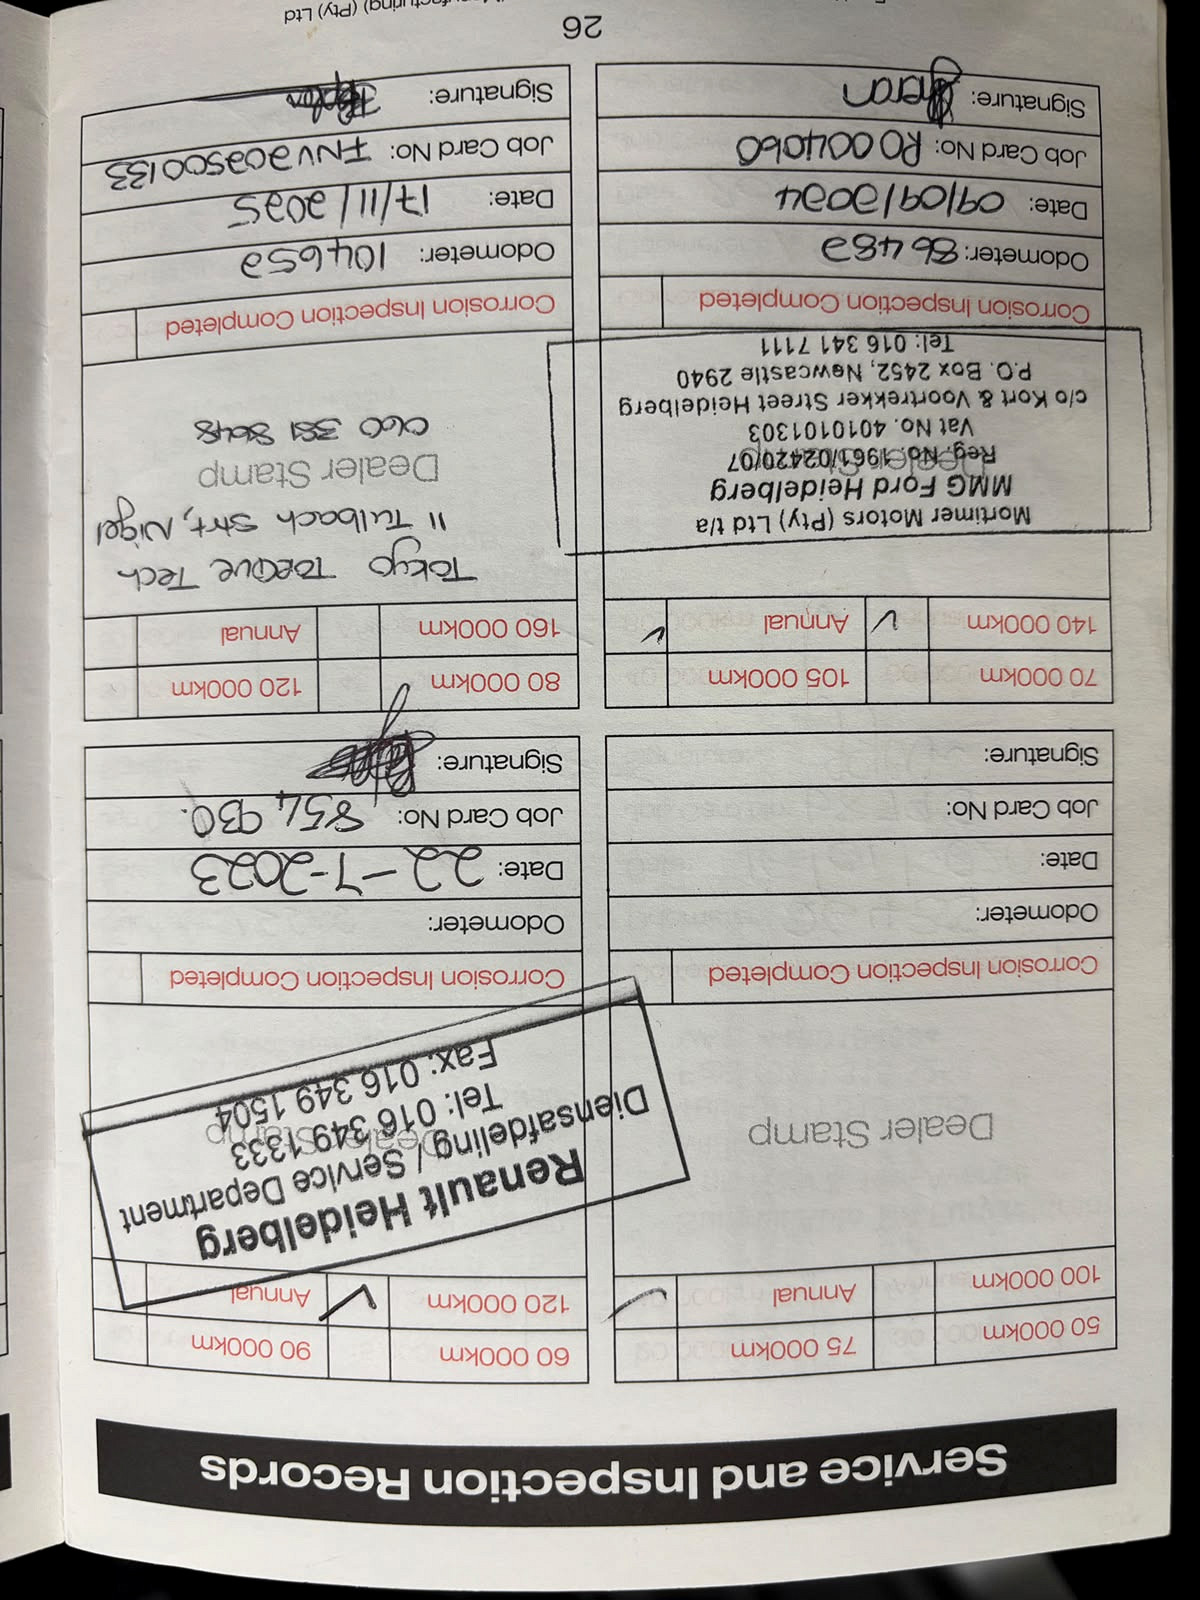 Service and Inspection Records
50 000km 75 000km
100 000km Annual
Dealer Stamp
Corrosion Inspection Completed
Odometer:
Date:
Job Card No:
Signature:
60 000km 90 000km
120 000km Annual
Renault Heidelberg
Diensafdeling / Service Department
Tel: 016 349 1333
Fax: 016 349 1504
Dealer Stamp
Corrosion Inspection Completed
Odometer:
Date: 22-7-2023
Job Card No: 854 930.
Signature:
70 000km 105 000km
140 000km Annual
Mortimer Motors (Pty) Ltd t/a
MMG Ford Heidelberg
Reg. No. 1961/02420/07
Dealer Stamp
Vat No. 4010101303
c/o Kort & Voortrekker Street Heidelberg
P.O. Box 2452, Newcastle 2940
Tel: 016 341 7111
Corrosion Inspection Completed
Odometer: 86482
Date: 09/09/2024
Job Card No: R0004060
Signature:
80 000km 120 000km
160 000km Annual
Tokyo Torque Tech
11 Tulbach Strt, Nigel
Dealer Stamp
060 381 8648
Corrosion Inspection Completed
Odometer: 104652
Date: 17/11/2025
Job Card No: INV202500133
Signature:
26
(Pty) Ltd